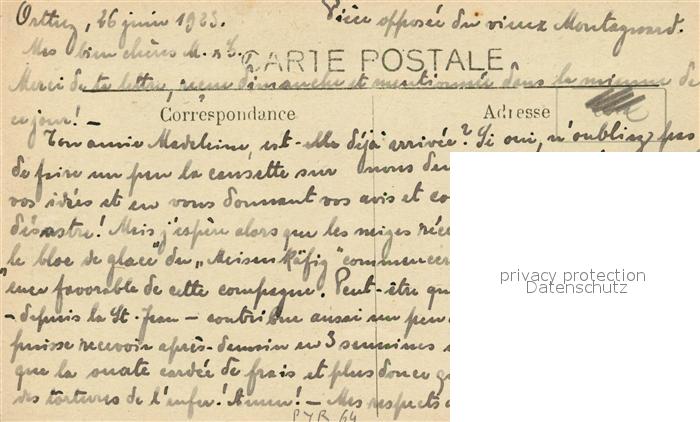 Orthez, 26 juin 1923. Vive opposée du vieux Montagnard.
Mes bien chères M. et L.
CARTE POSTALE
Merci de ta lettre, reçue dimanche et mentionnée dans la mienne de
ce jour! —
Correspondance
Adresse
Ton amie Madeleine, est-elle déjà arrivée? Si oui, n'oubliez pas
de faire un peu la causette sur nous deux
vos idées et en vous donnant vos avis et co
désastre! Mais j'espère alors que les neiges réce
le bloc de glace" du „Meisenkäfig" commencer
"ence favorable de cette compagne. Peut-être qu
— depuis la St. Jean — contribue aussi un peu
puisse recevoir après-demain en 3 semaines
que la ouate cardée de frais et plus douce q
des tortures de l'enfer! Amen! — Mes respects
PYR 64
privacy protection
Datenschutz